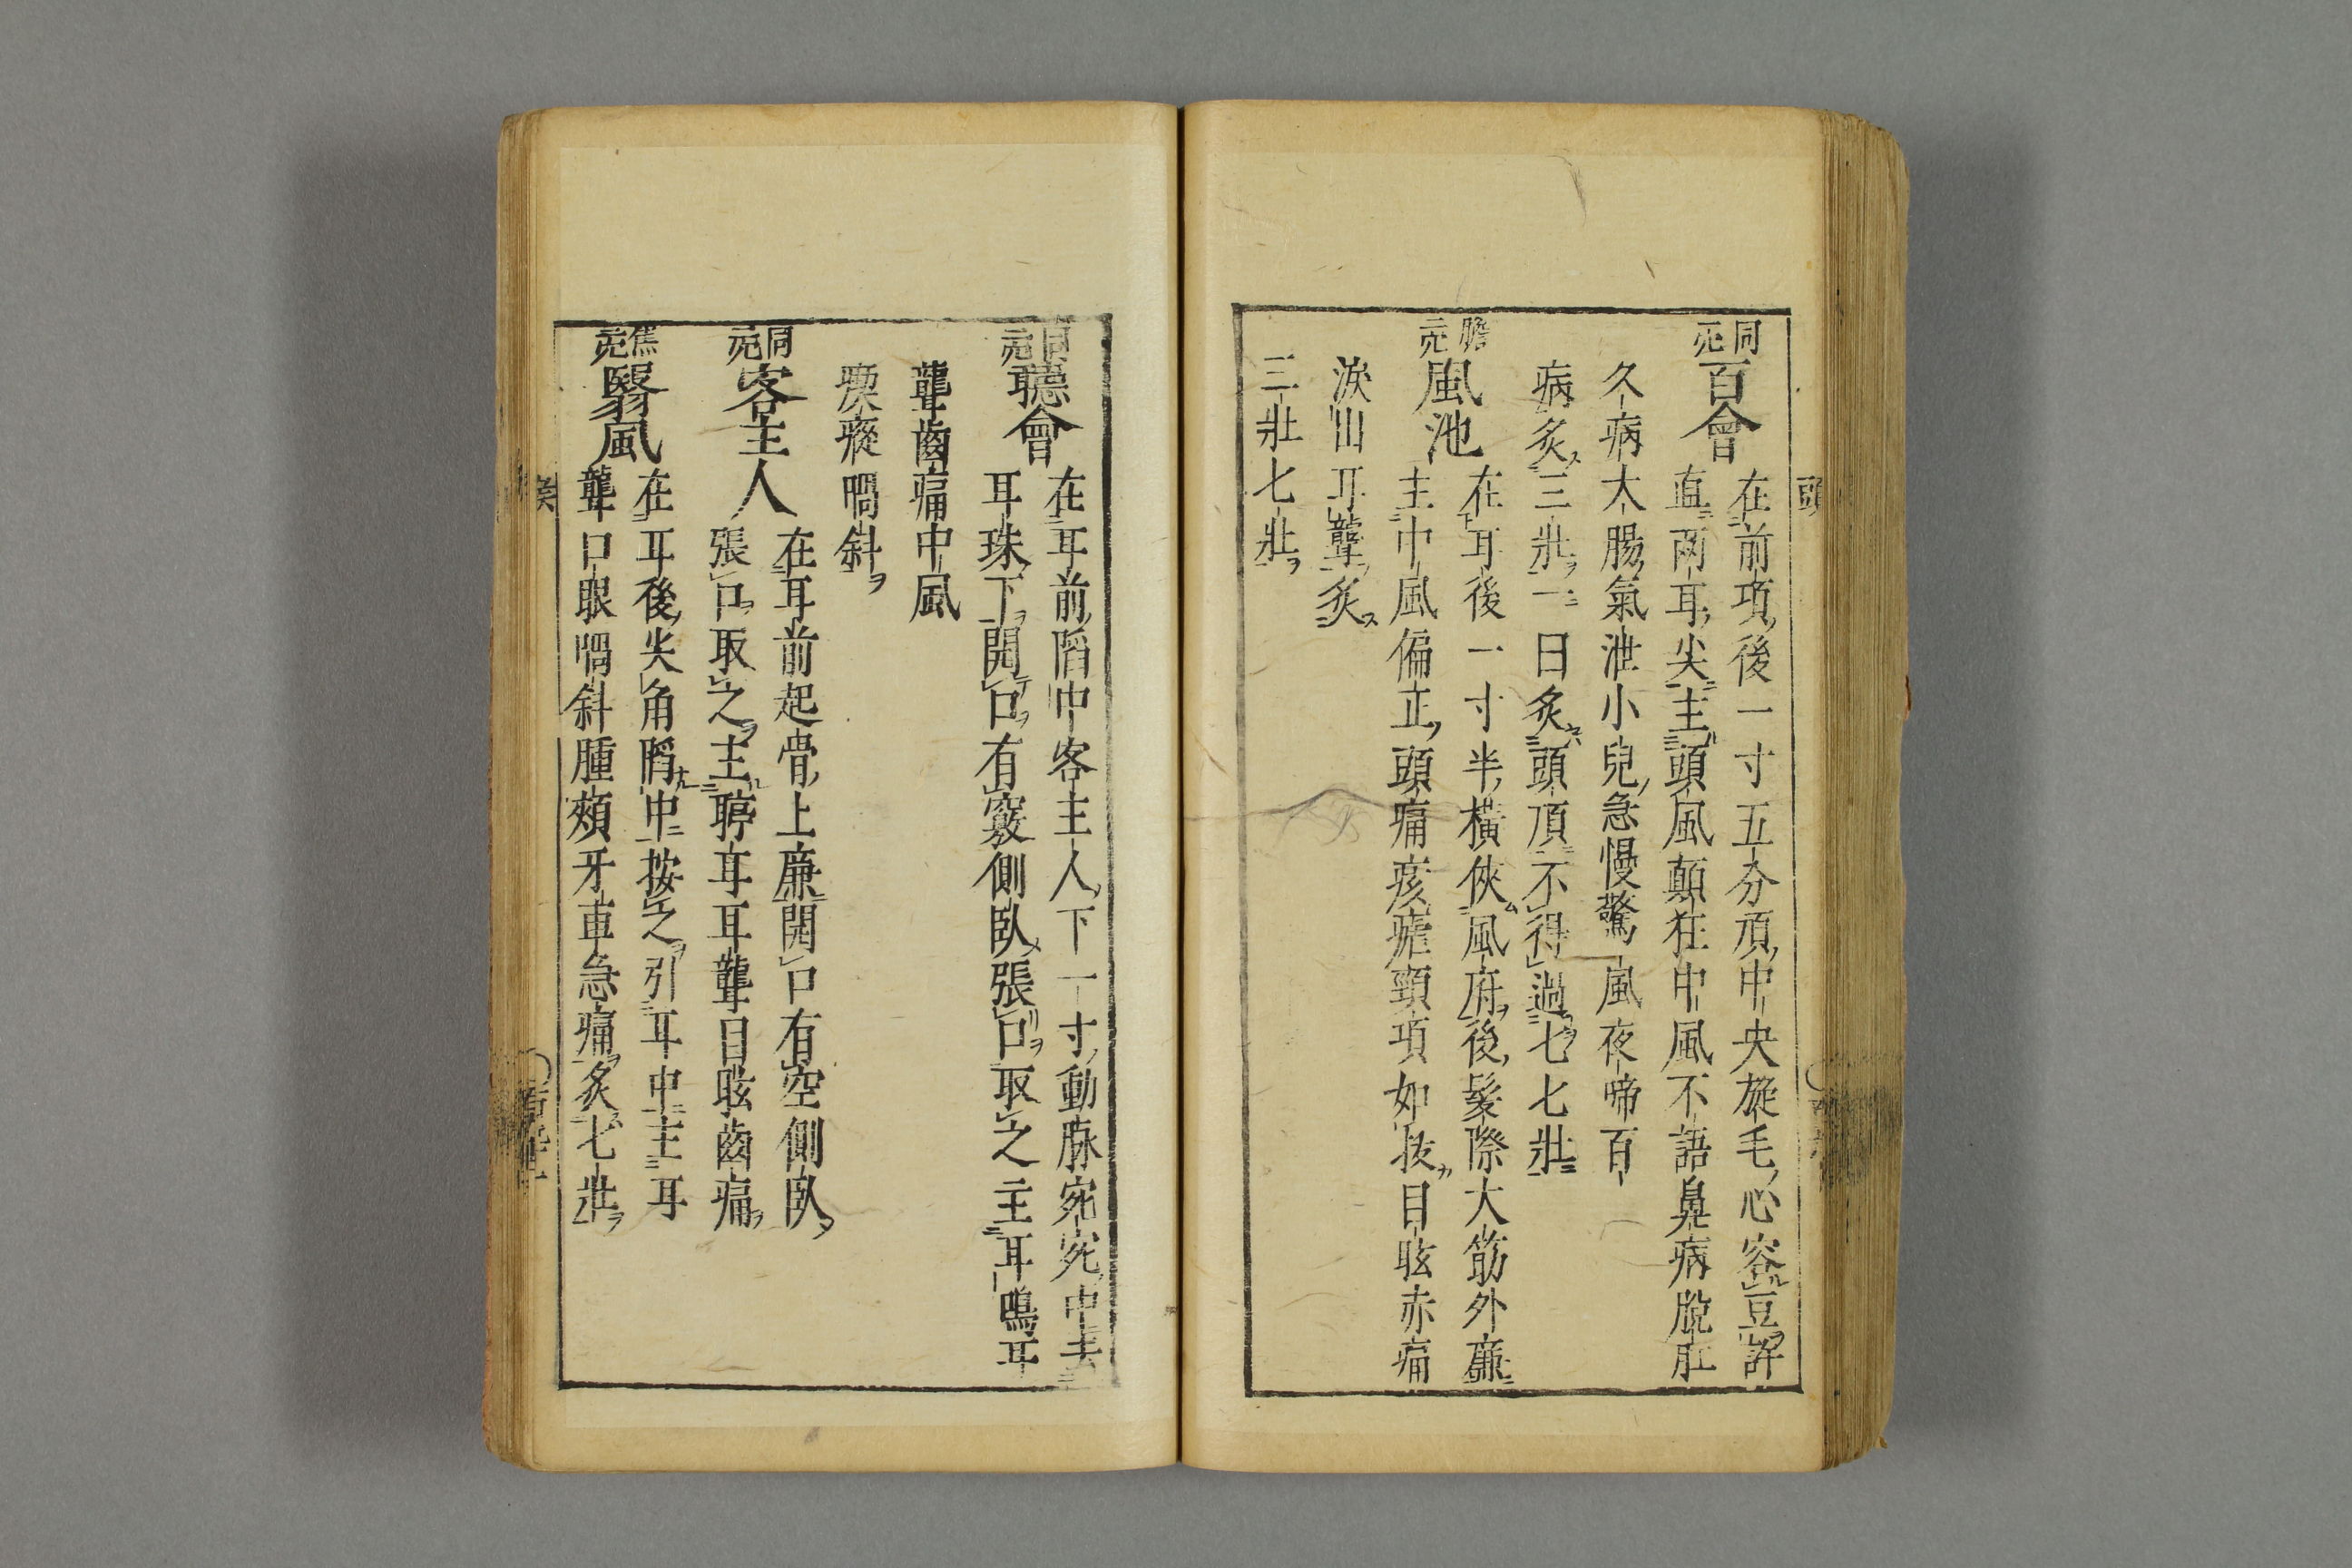 頭
同 元 百會 在前項後一寸五分頂中央旋毛心容豆許
直兩耳尖主頭風顛狂中風不語鼻病脫肛
久病大腸氣泄小兒急慢驚風夜啼百
病炙三壯一曰炙頭頂不得過七七壯
膽 元 風池 在耳後一寸半橫俠風府後髮際大筋外廉
主中風偏正頭痛痎瘧頸項如拔目眩赤痛
淚出耳聾炙
三壯七壯
同 元 聽會 在耳前陷中客主人下一寸動脉宛宛中去
耳珠下開口有竅側臥張口取之主耳鳴耳
聾齒痛中風
瘈瘲喎斜
同 元 客主人 在耳前起骨上廉開口有空側臥
張口取之主聤耳耳聾目眩齒痛
焦 元 翳風 在耳後尖角陷中按之引耳中主耳
聾口眼喎斜腫頰牙車急痛炙七壯